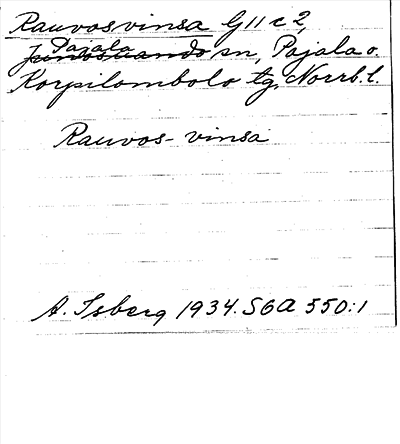 Rauvosvinsa G11 c 2,
Pajala
Junosuando sn, Pajala o.
Korpilombolo tg, Norrb. l.
Rauvos- vinsa
A. Isberg 1934. SGA 550:1